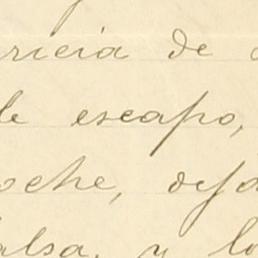 ricia de
le escapo,
oche, deja
alsa, y lo